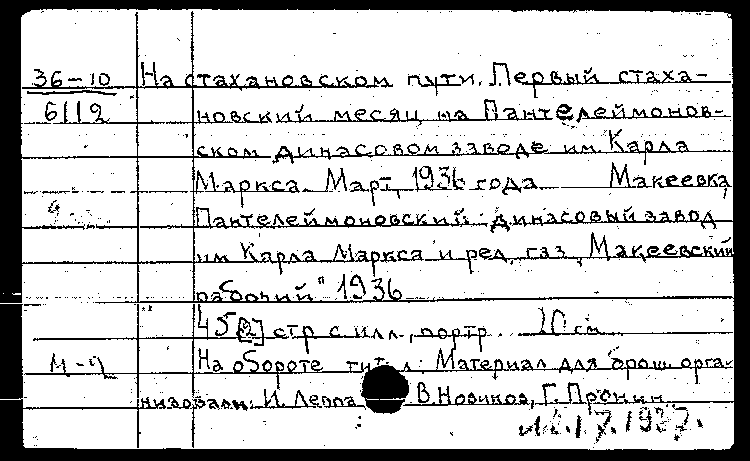 36-10
6112
На стахановском пути. Первый стаха-
новский месяц на Пантелеймонов-
ском динасовом заводе им Карла
Маркса. Март, 1936 года. Макеевка,
Пантелеймоновский динасовый завод
им Карла Маркса и ред. газ. „Макеевский
рабочий" 1936
45[2] стр с илл., портр. 20 см
М-2
На обороте тит. л: Материал для брош. орга-
низовали: И. Леппа В. Новиков, Г. Пронин.